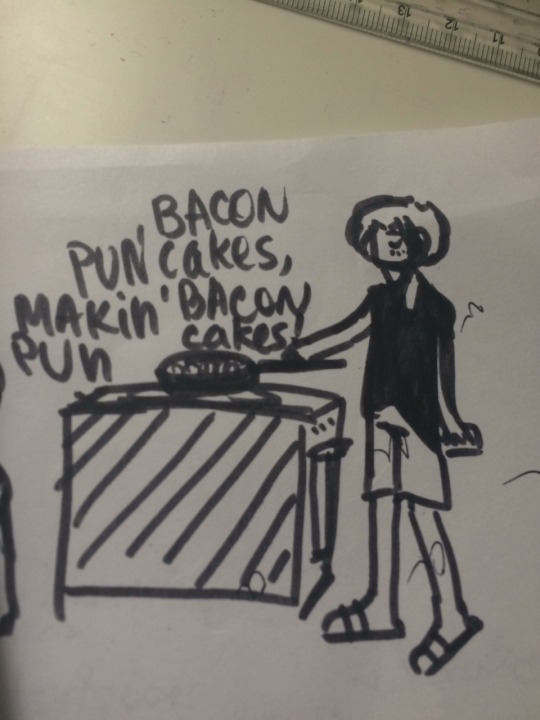 13 12 11
BACON
PUN cakes,
MAKin' BACON
PUN cakes!